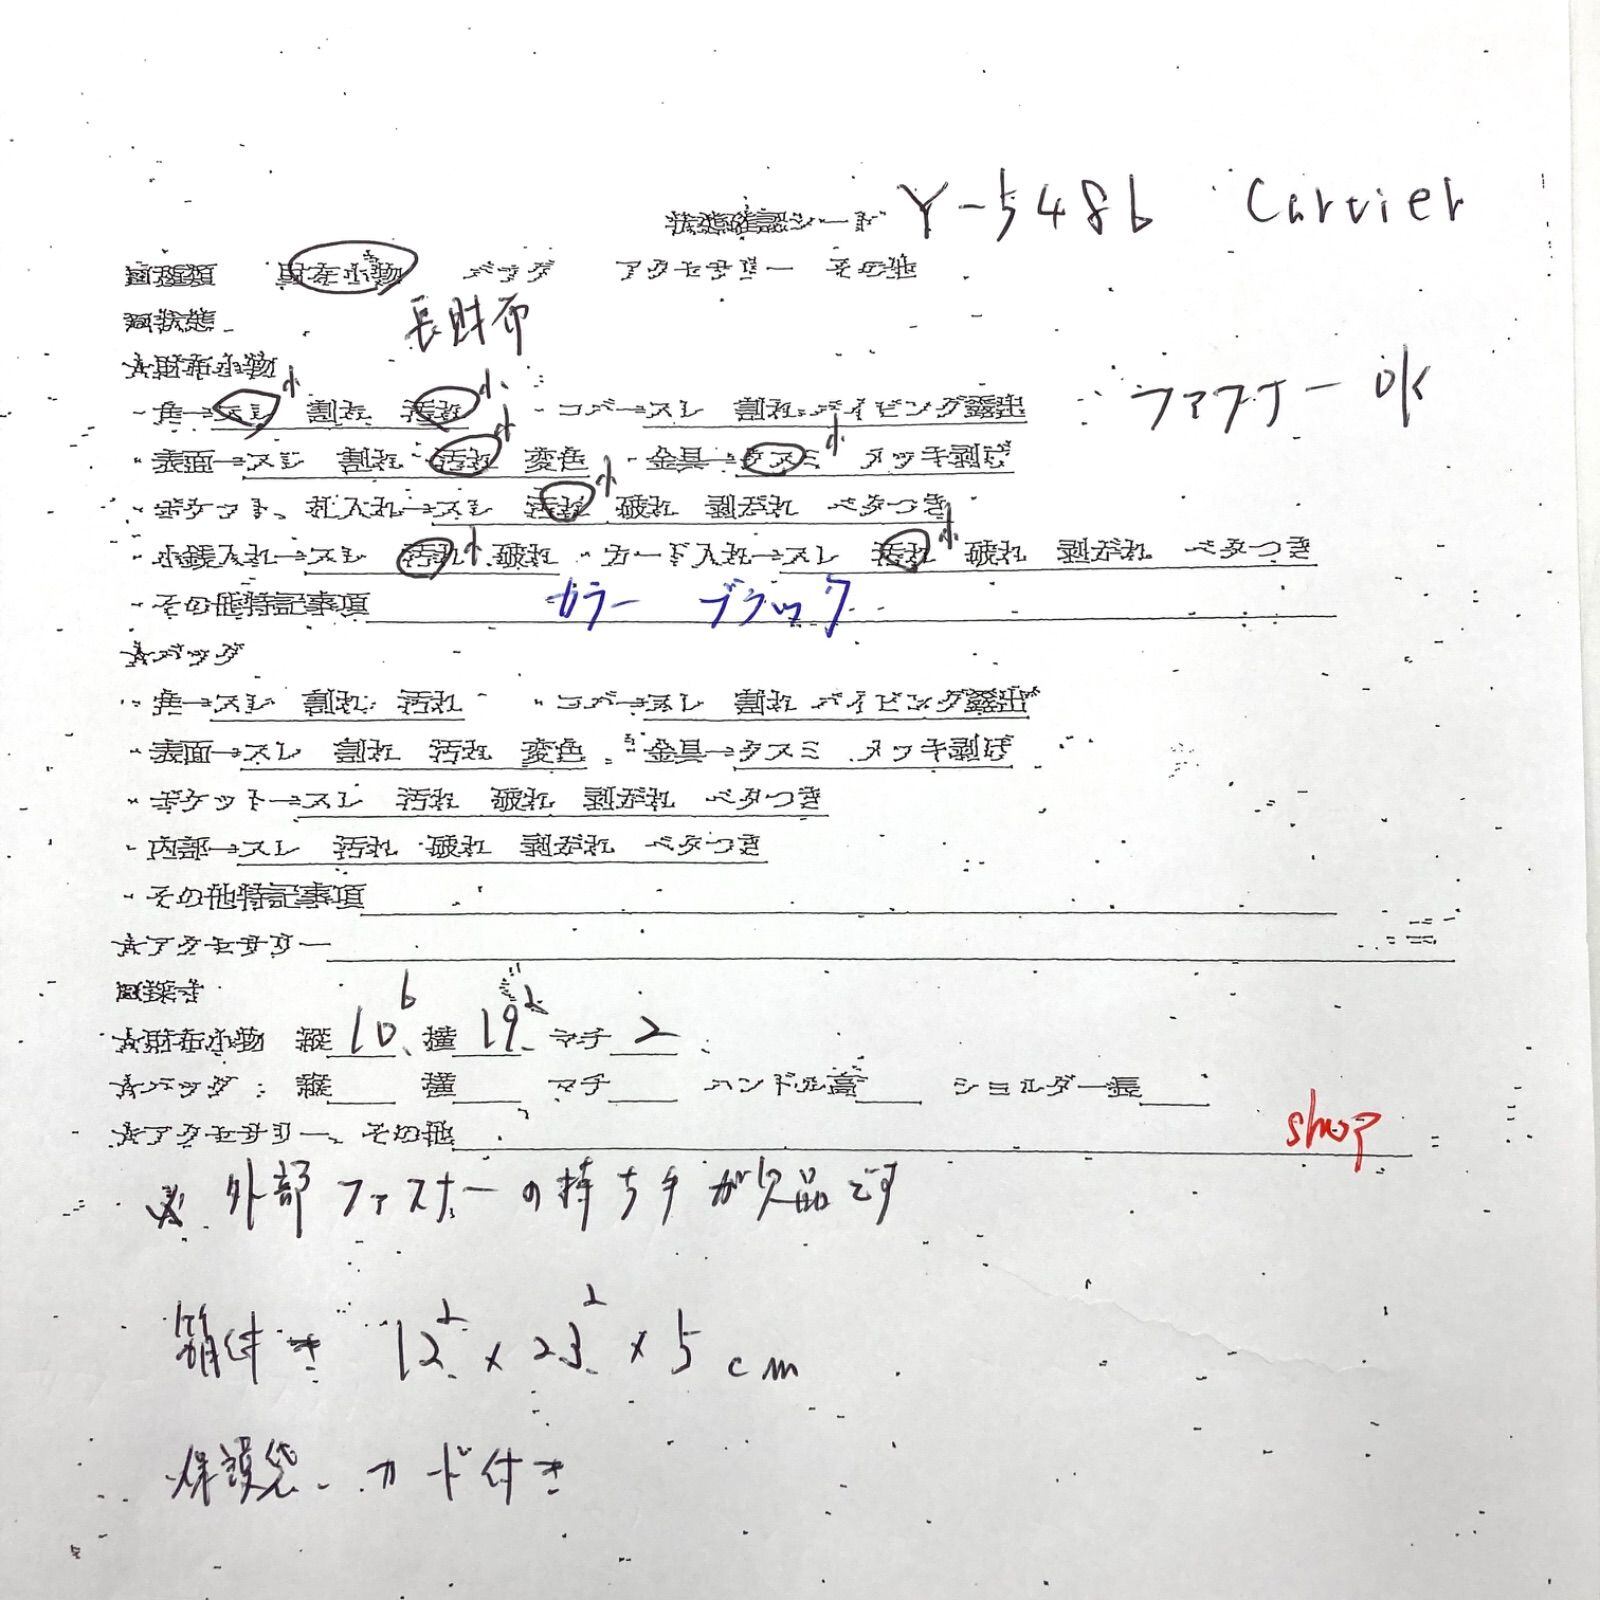 状態確認シート Y-5486 Carvieh
□種類 財布小物 バッグ アクセサリー その他
□状態 長財布
☆財布小物
・角→スレ小 割れ 汚れ小 ・コバ→スレ 割れ パイピング露出 ファスナー OK
・表面→スレ 割れ 汚れ小 変色 ・金具→クスミ小 メッキ剥げ
・ポケット、札入れ→スレ 汚れ小 破れ 剥がれ ベタつき
・小銭入れ→スレ 汚れ小 破れ ・カード入れ→スレ 汚れ小 破れ 剥がれ ベタつき
・その他特記事項 カラー ブラック
☆バッグ
・角→スレ 割れ 汚れ ・コバ→スレ 割れ パイピング露出
・表面→スレ 割れ 汚れ 変色 ・金具→クスミ メッキ剥げ
・ポケット→スレ 汚れ 破れ 剥がれ ベタつき
・内部→スレ 汚れ 破れ 剥がれ ベタつき
・その他特記事項
☆アクセサリー
□採寸
☆財布小物 縦10.6 横19.2 マチ2
☆バッグ 縦 横 マチ ハンドル高 ショルダー長
☆アクセサリー、その他 shop
※ 外部ファスナーの持ち手が欠品です
箱付き 12.2×23.2×5cm
保護袋、カード付き